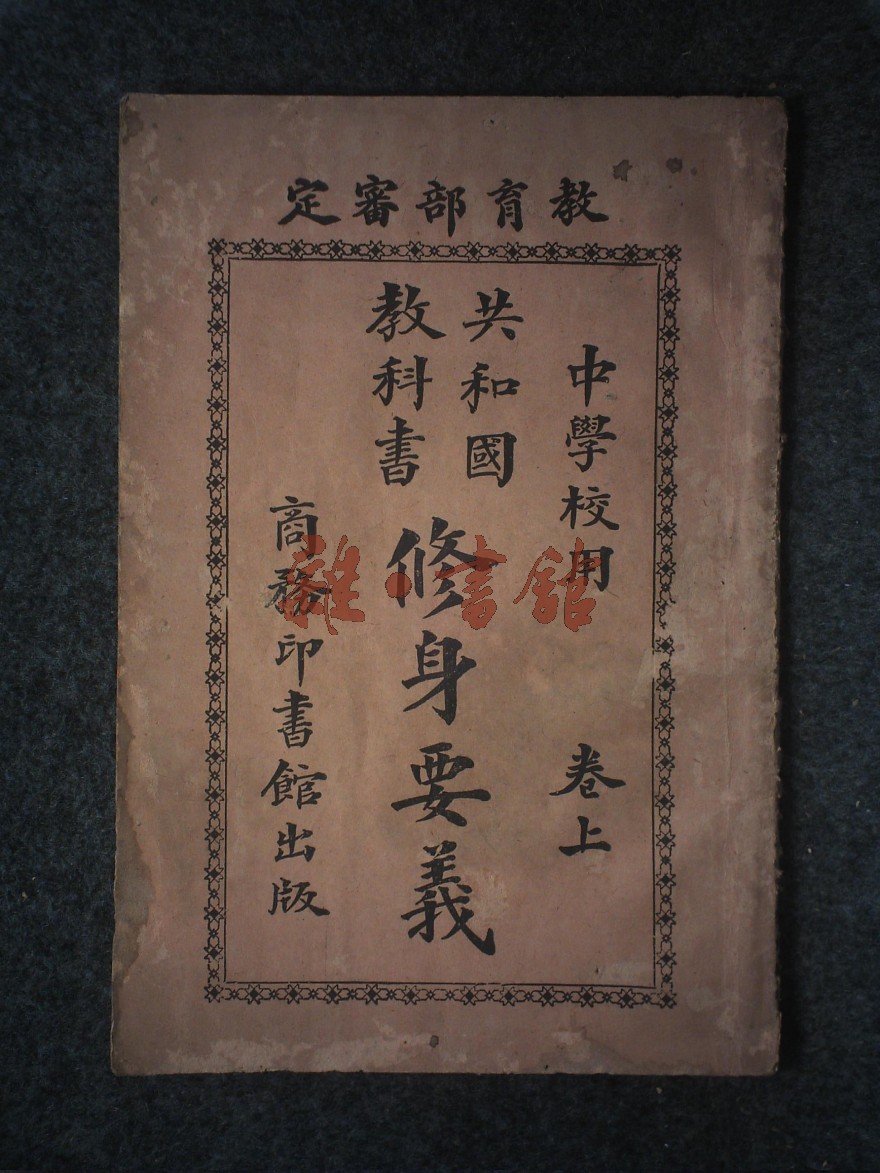 教育部審定
中學校用 卷上
共和國
教科書
修身要義
商務印書館出版
雜·書館